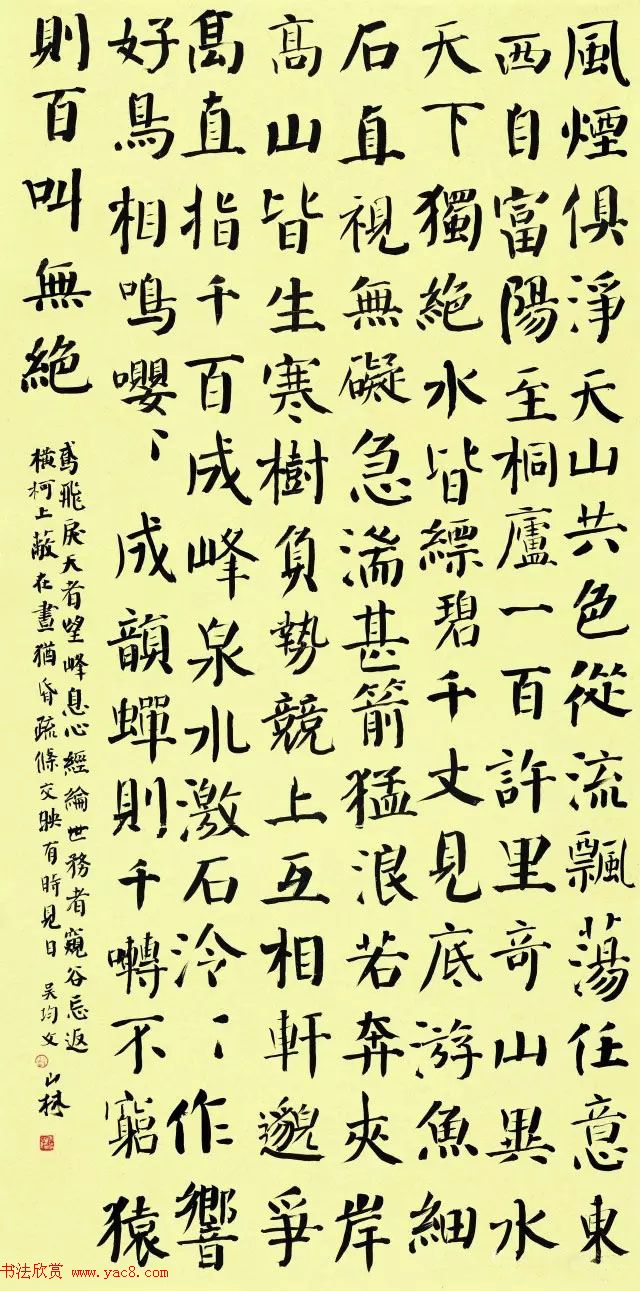 風煙俱淨天山共色從流飄蕩任意東
西自富陽至桐廬一百許里奇山異水
天下獨絕水皆縹碧千丈見底游魚細
石直視無礙急湍甚箭猛浪若奔夾岸
高山皆生寒樹負勢競上互相軒邈爭
高直指千百成峰泉水激石泠丶作響
好鳥相鳴嚶丶成韻蟬則千囀不窮猿
則百叫無絕
鳶飛戾天者望峰息心經綸世務者窺谷忘返
橫柯上蔽在晝猶昏疏條交映有時見日 吳均文
书法欣赏 www.yac8.com